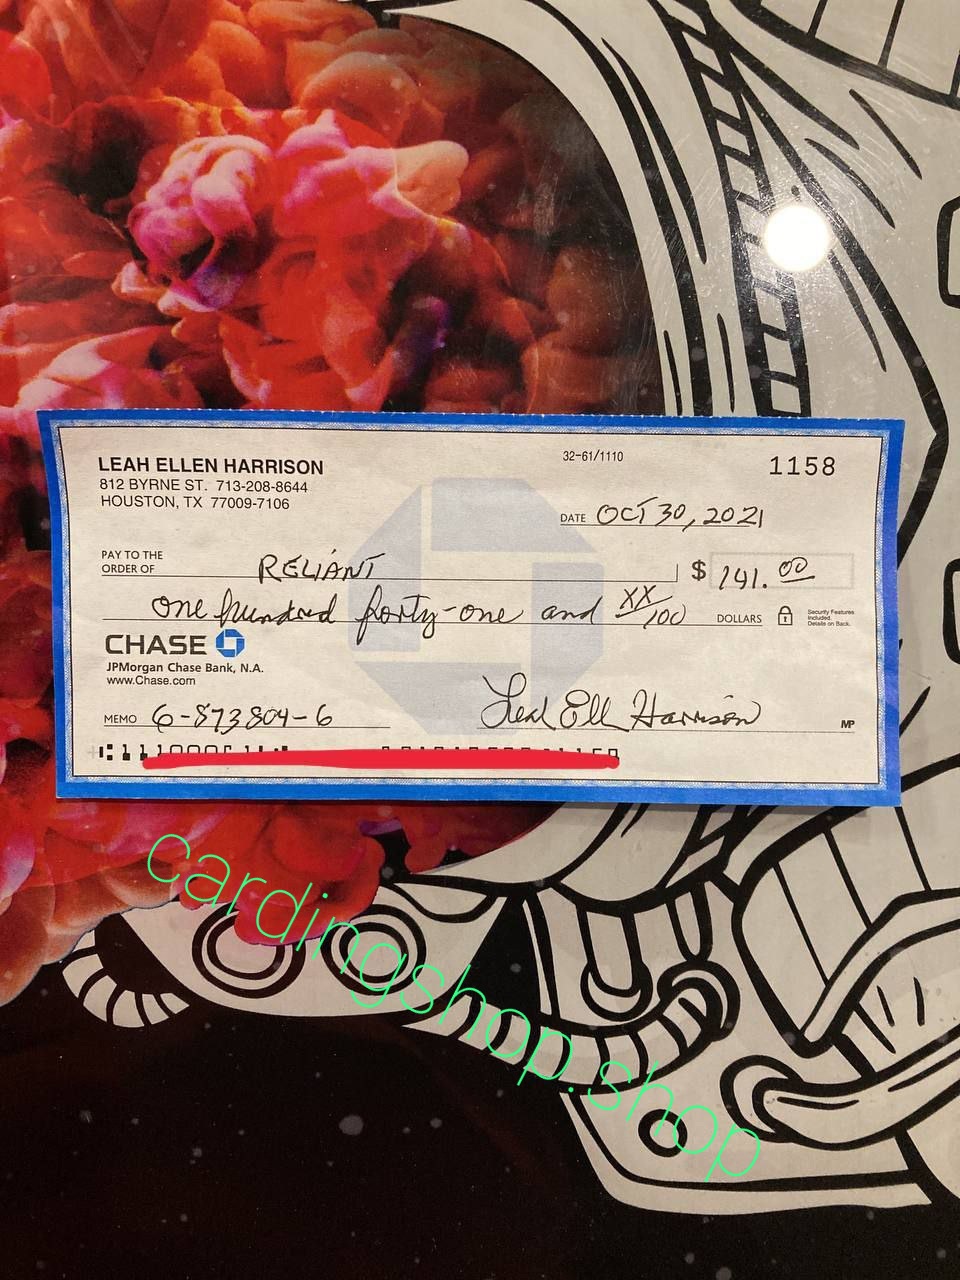 LEAH ELLEN HARRISON
812 BYRNE ST. 713-208-8644
HOUSTON, TX 77009-7106
32-61/1110
1158
DATE OCT 30, 2021
PAY TO THE
ORDER OF RELIANT $ 141.00
one hundred forty-one and XX/100 DOLLARS
Security Features
Included.
Details on Back.
CHASE
JPMorgan Chase Bank, N.A.
www.Chase.com
MEMO 6-873804-6 Leah Ellen Harrison
MP
cardingshop.shop